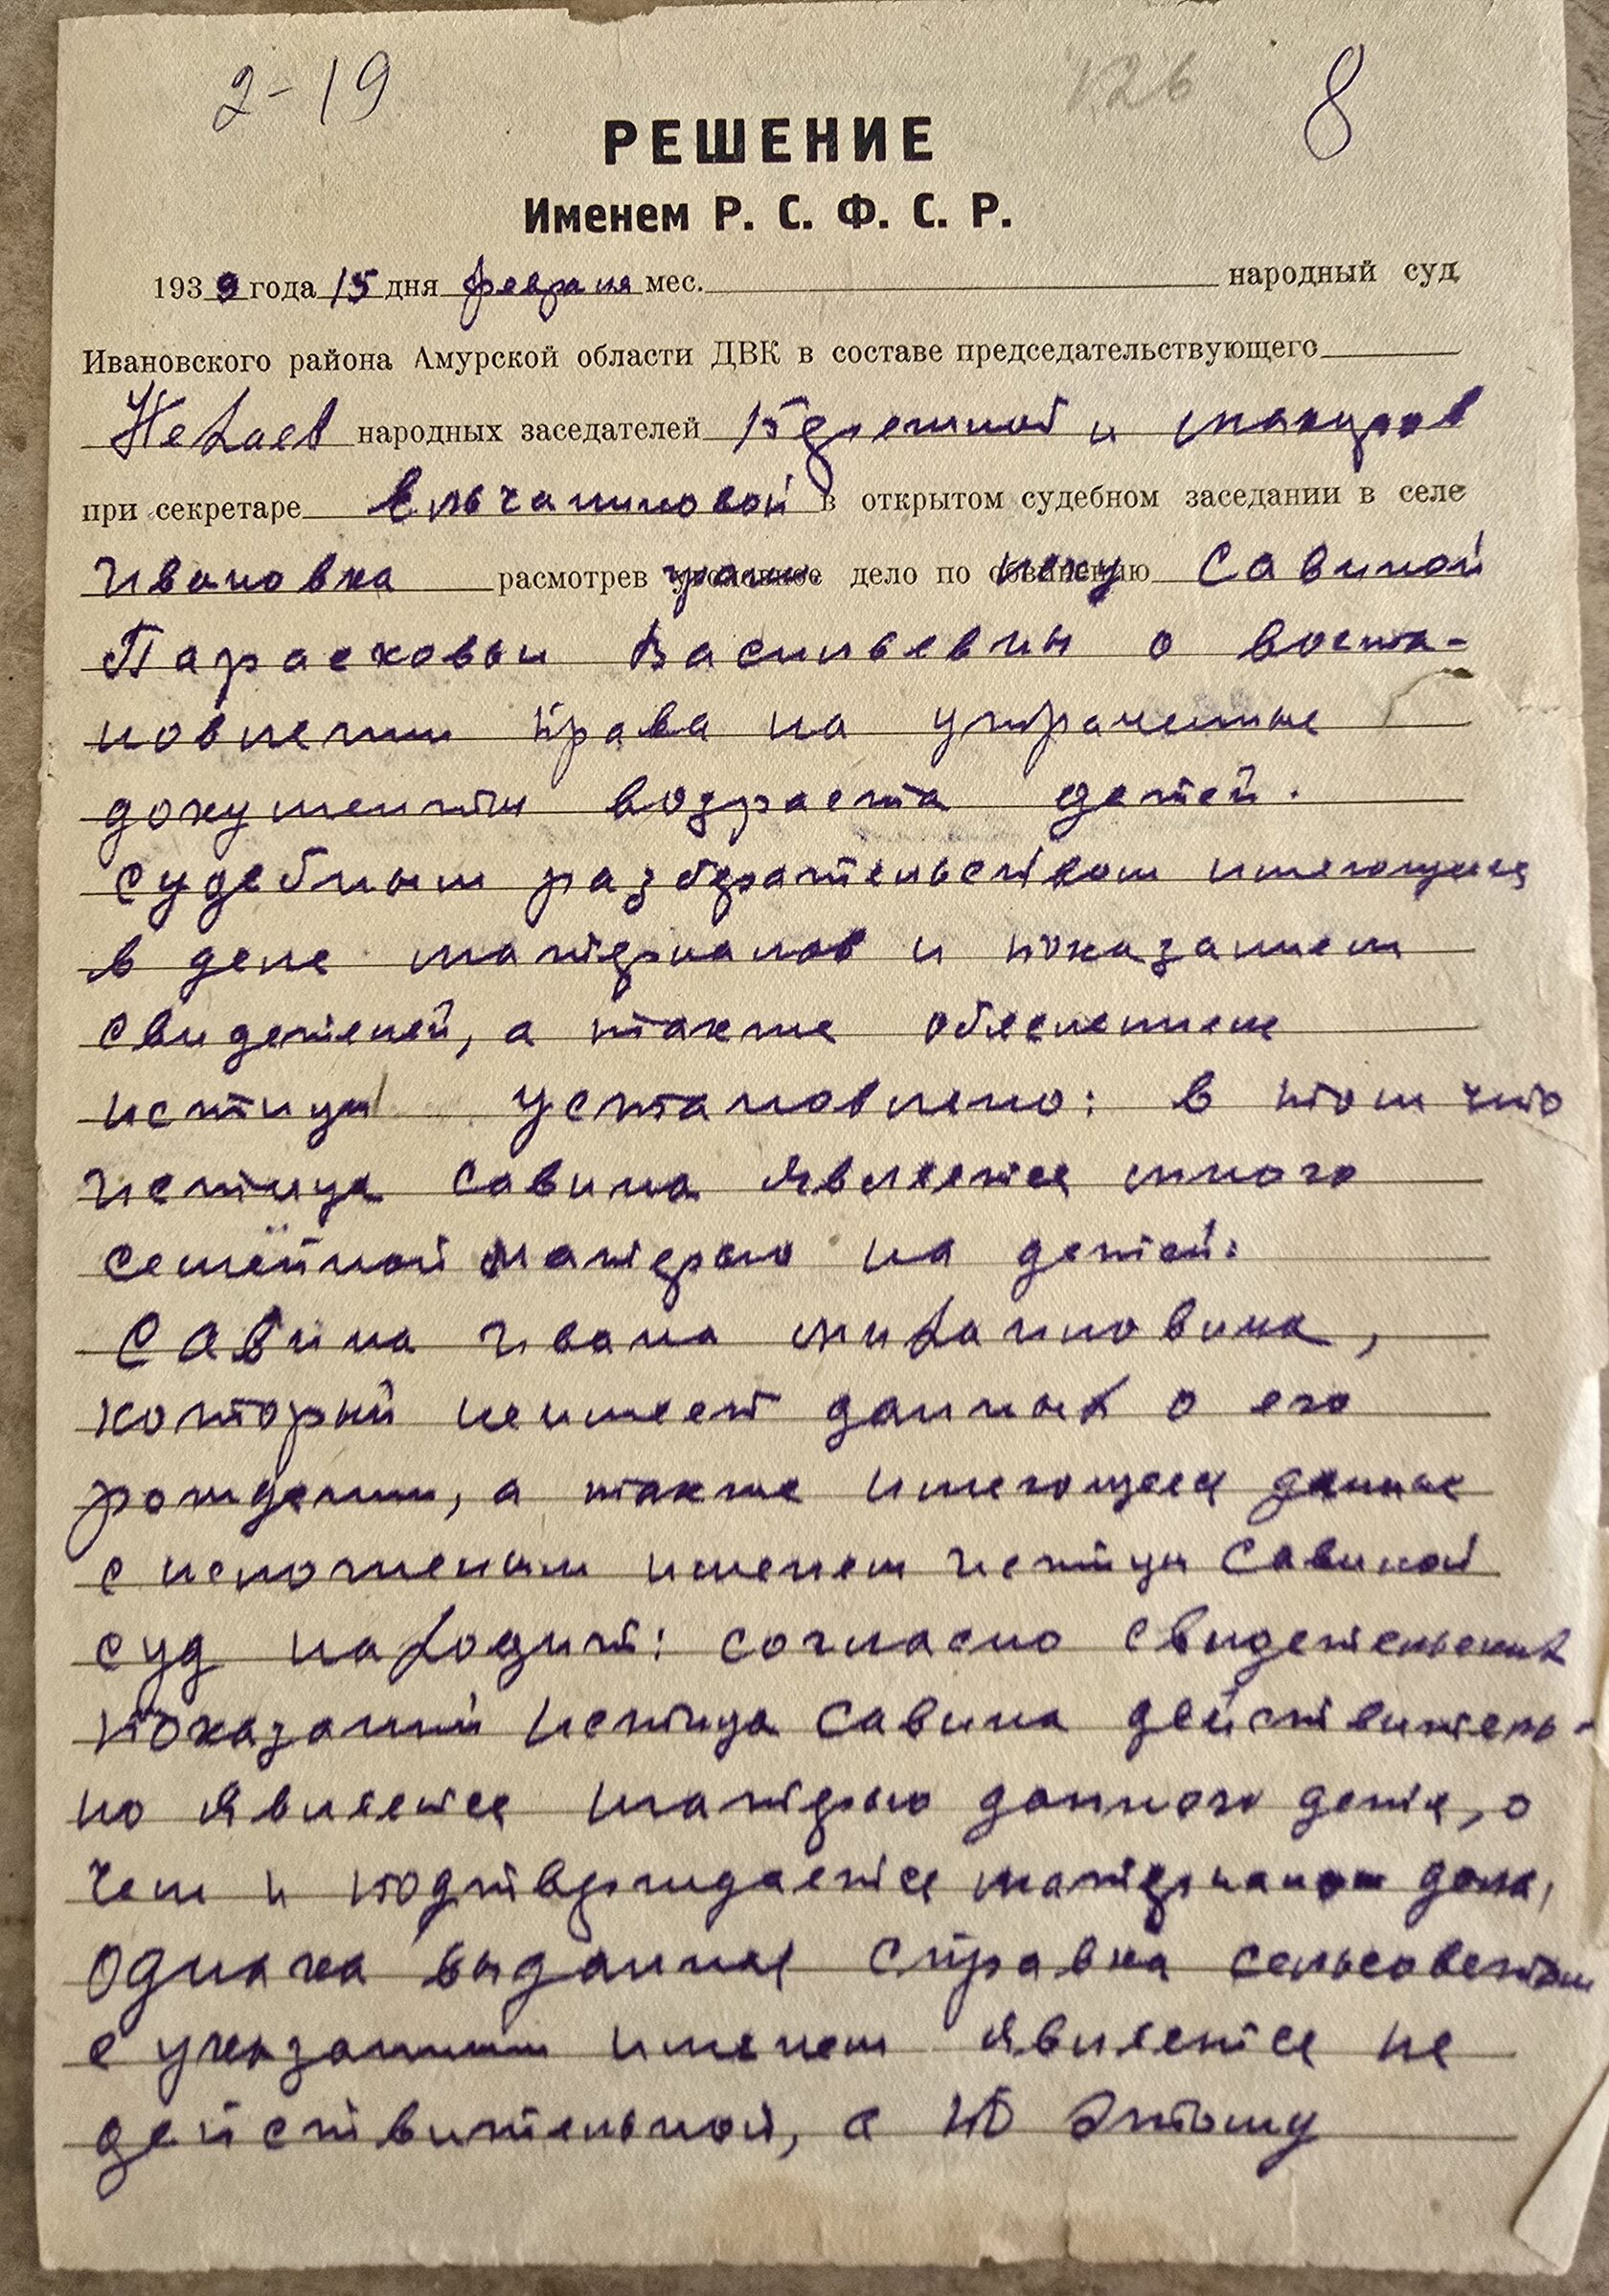 2-19 126 8
РЕШЕНИЕ
Именем Р. С. Ф. С. Р.
1939 года 15 дня февраля мес. народный суд
Ивановского района Амурской области ДВК в составе председательствующего
Нехаев народных заседателей и
при секретаре Ельчаниновой в открытом судебном заседании в селе
Ивановка расмотрев дело по иску Савиной
Парасковьи Васильевны о воста-
новлении права на утраченные
документы возраста детей.
Судебным разберательством имеющися
в деле материалов и показанием
свидетелей, а также обяснением
истицы установлено: в том что
истица Савина является много
семейной матерью на детей:
Савина Ивана Михаиловича,
который неимеет данных о его
рождении, а также имеющеся данные
с исполненым именем истицы Савиной
суд находит: согласно свидетельских
показаний истица Савина действитель-
но является матерью данного детя, о
чем и подтверждается материалом дела,
однака выданная справка сельсоветом
с указанным именем является не
действительной, а по этому